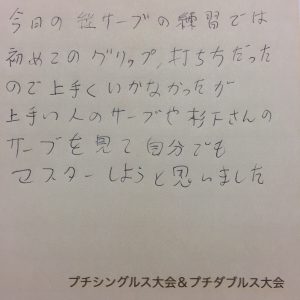 今日の縦サーブの練習では
初めてのグリップ,打ち方だった
ので上手くいかなかったが
上手い人のサーブや杉下さんの
サーブを見て自分でも
マスターしようと思いました
プチシングルス大会&プチダブルス大会